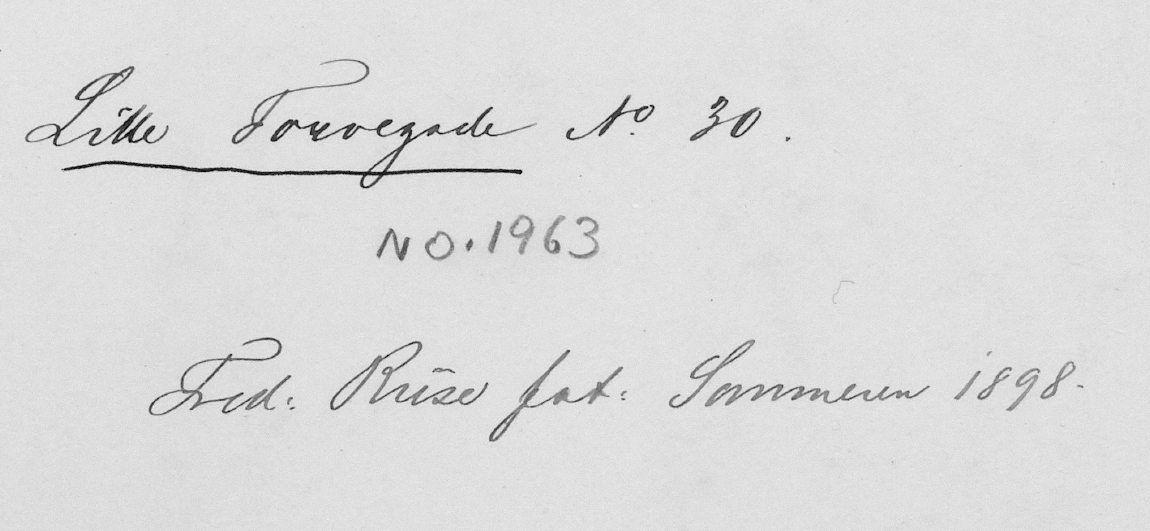 Lille Torvegade No 30.
NO. 1963
Fred: Riise fot: Sommeren 1898.